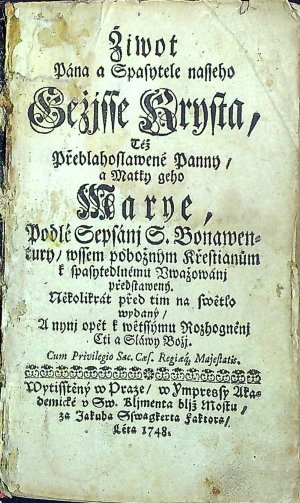 Žiwot
Pána a Spasytele nasseho
Gežjsse Krysta,
Též
Přeblahoslawené Panny /
a Matky geho
Marye,
Podlé Sepsánj S. Bonawen-
tury / wssem pobožným Křestianům
k spasytedlnému Vwažowánj
představený.
Několikrát před tim na swětlo
wydaný /
A nynj opět k wětssýmu Rozhogněnj
Cti a Sláwy Božj.
Cum Privilegio Sac. Cæs. Regiæq; Majestatis.
Wytisstěný w Praze / w Ympressý Aka-
demické v Sw. Klimenta bljž Mostu /
za Jakuba Sswagkerta Faktora /
Léta 1748.